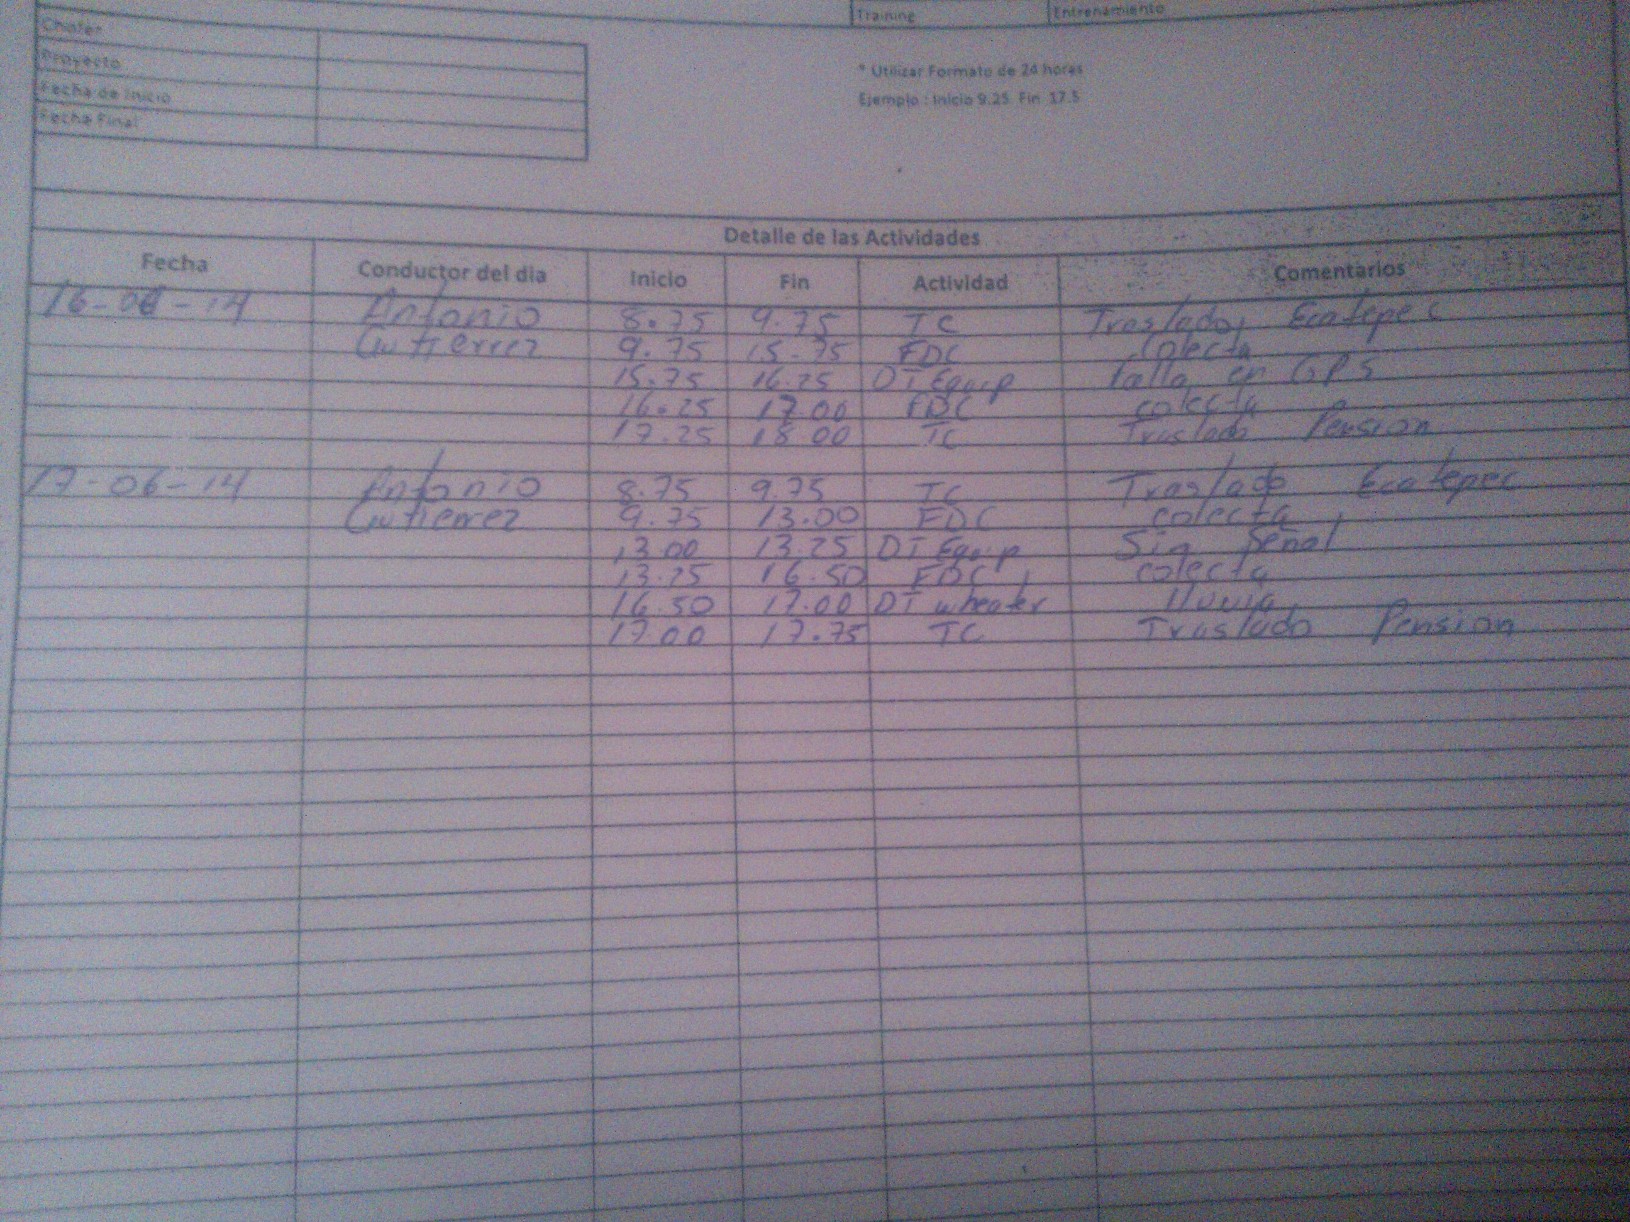 Training Entrenamiento
Chofer
Proyecto
Fecha de Inicio
Fecha Final
* Utilizar Formato de 24 horas
Ejemplo : Inicio 9.25 Fin 17.5
Detalle de las Actividades
Fecha Conductor del dia Inicio Fin Actividad Comentarios
16-06-14 Antonio 8.75 9.75 TC Traslado Ecatepec
Gutierrez 9.75 15.75 FDC Colecta
15.75 16.25 DT Equip falla en GPS
16.25 17.00 FDC colecta
17.25 18.00 TC Traslado Pension
17-06-14 Antonio 8.75 9.75 TC Traslado Ecatepec
Gutierrez 9.75 13.00 FDC colecta
13.00 13.25 DT Equip Sin Señal
13.25 16.50 FDC colecta
16.50 17.00 DT wheater lluvia
17.00 17.75 TC Traslado Pension